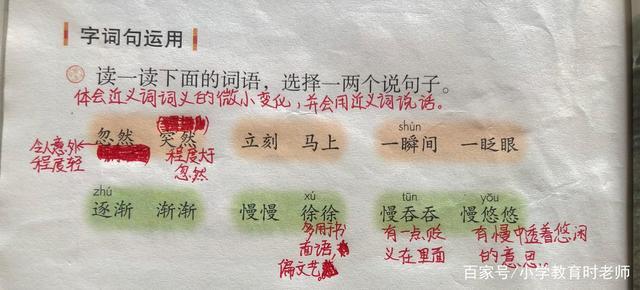 字词句运用
读一读下面的词语，选择一两个说句子。
体会近义词词义的微小变化，并会用近义词说话。
忽然 突然 立刻 马上 shùn 一瞬间 一眨眼
令人意外
程度轻
程度大于
忽然
zhú xú tūn yōu
逐渐 渐渐 慢慢 徐徐 慢吞吞 慢悠悠
多用于书
面语，
偏文艺。
有一点贬
义在里面
有慢中透着悠闲
的意思。
百家号/小学教育时老师